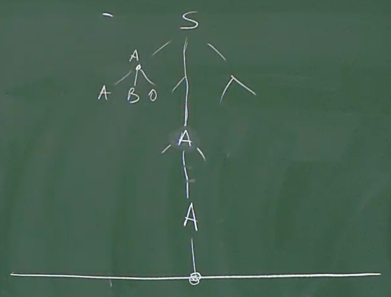 S
A
A B D
A
A